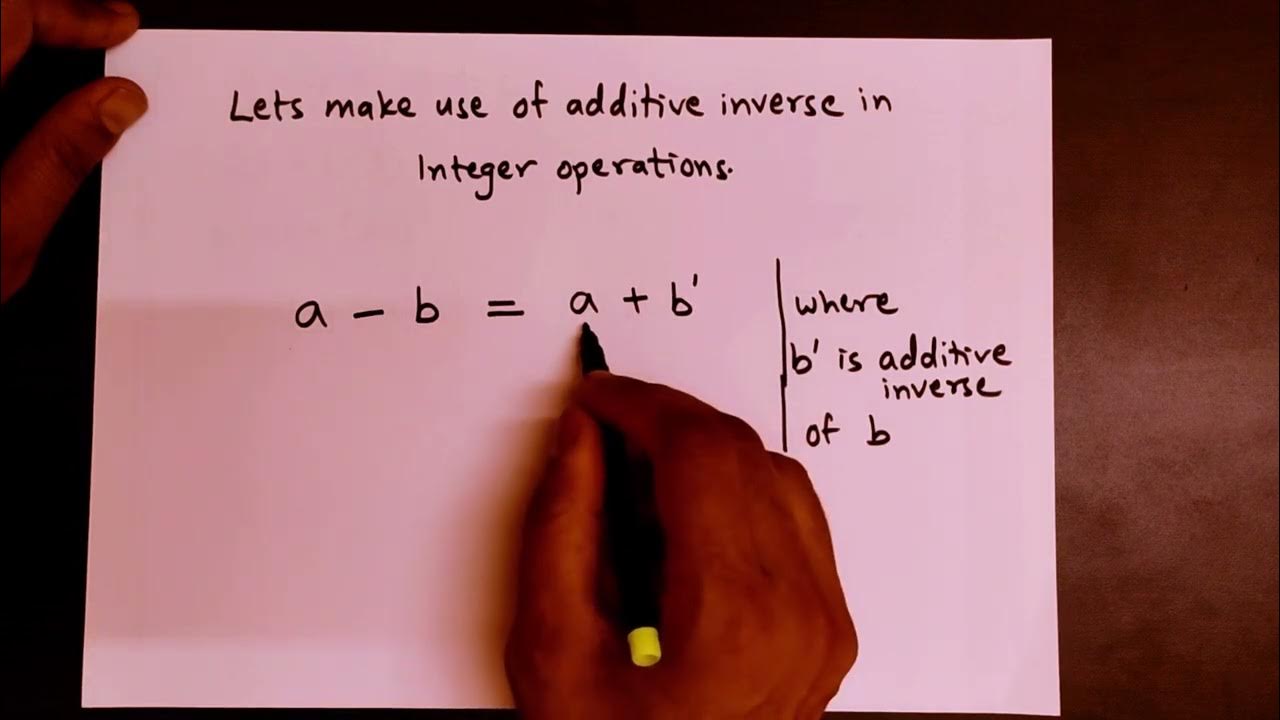 Lets make use of additive inverse in
Integer operations.
a - b = a + b'
where
b' is additive
inverse
of b